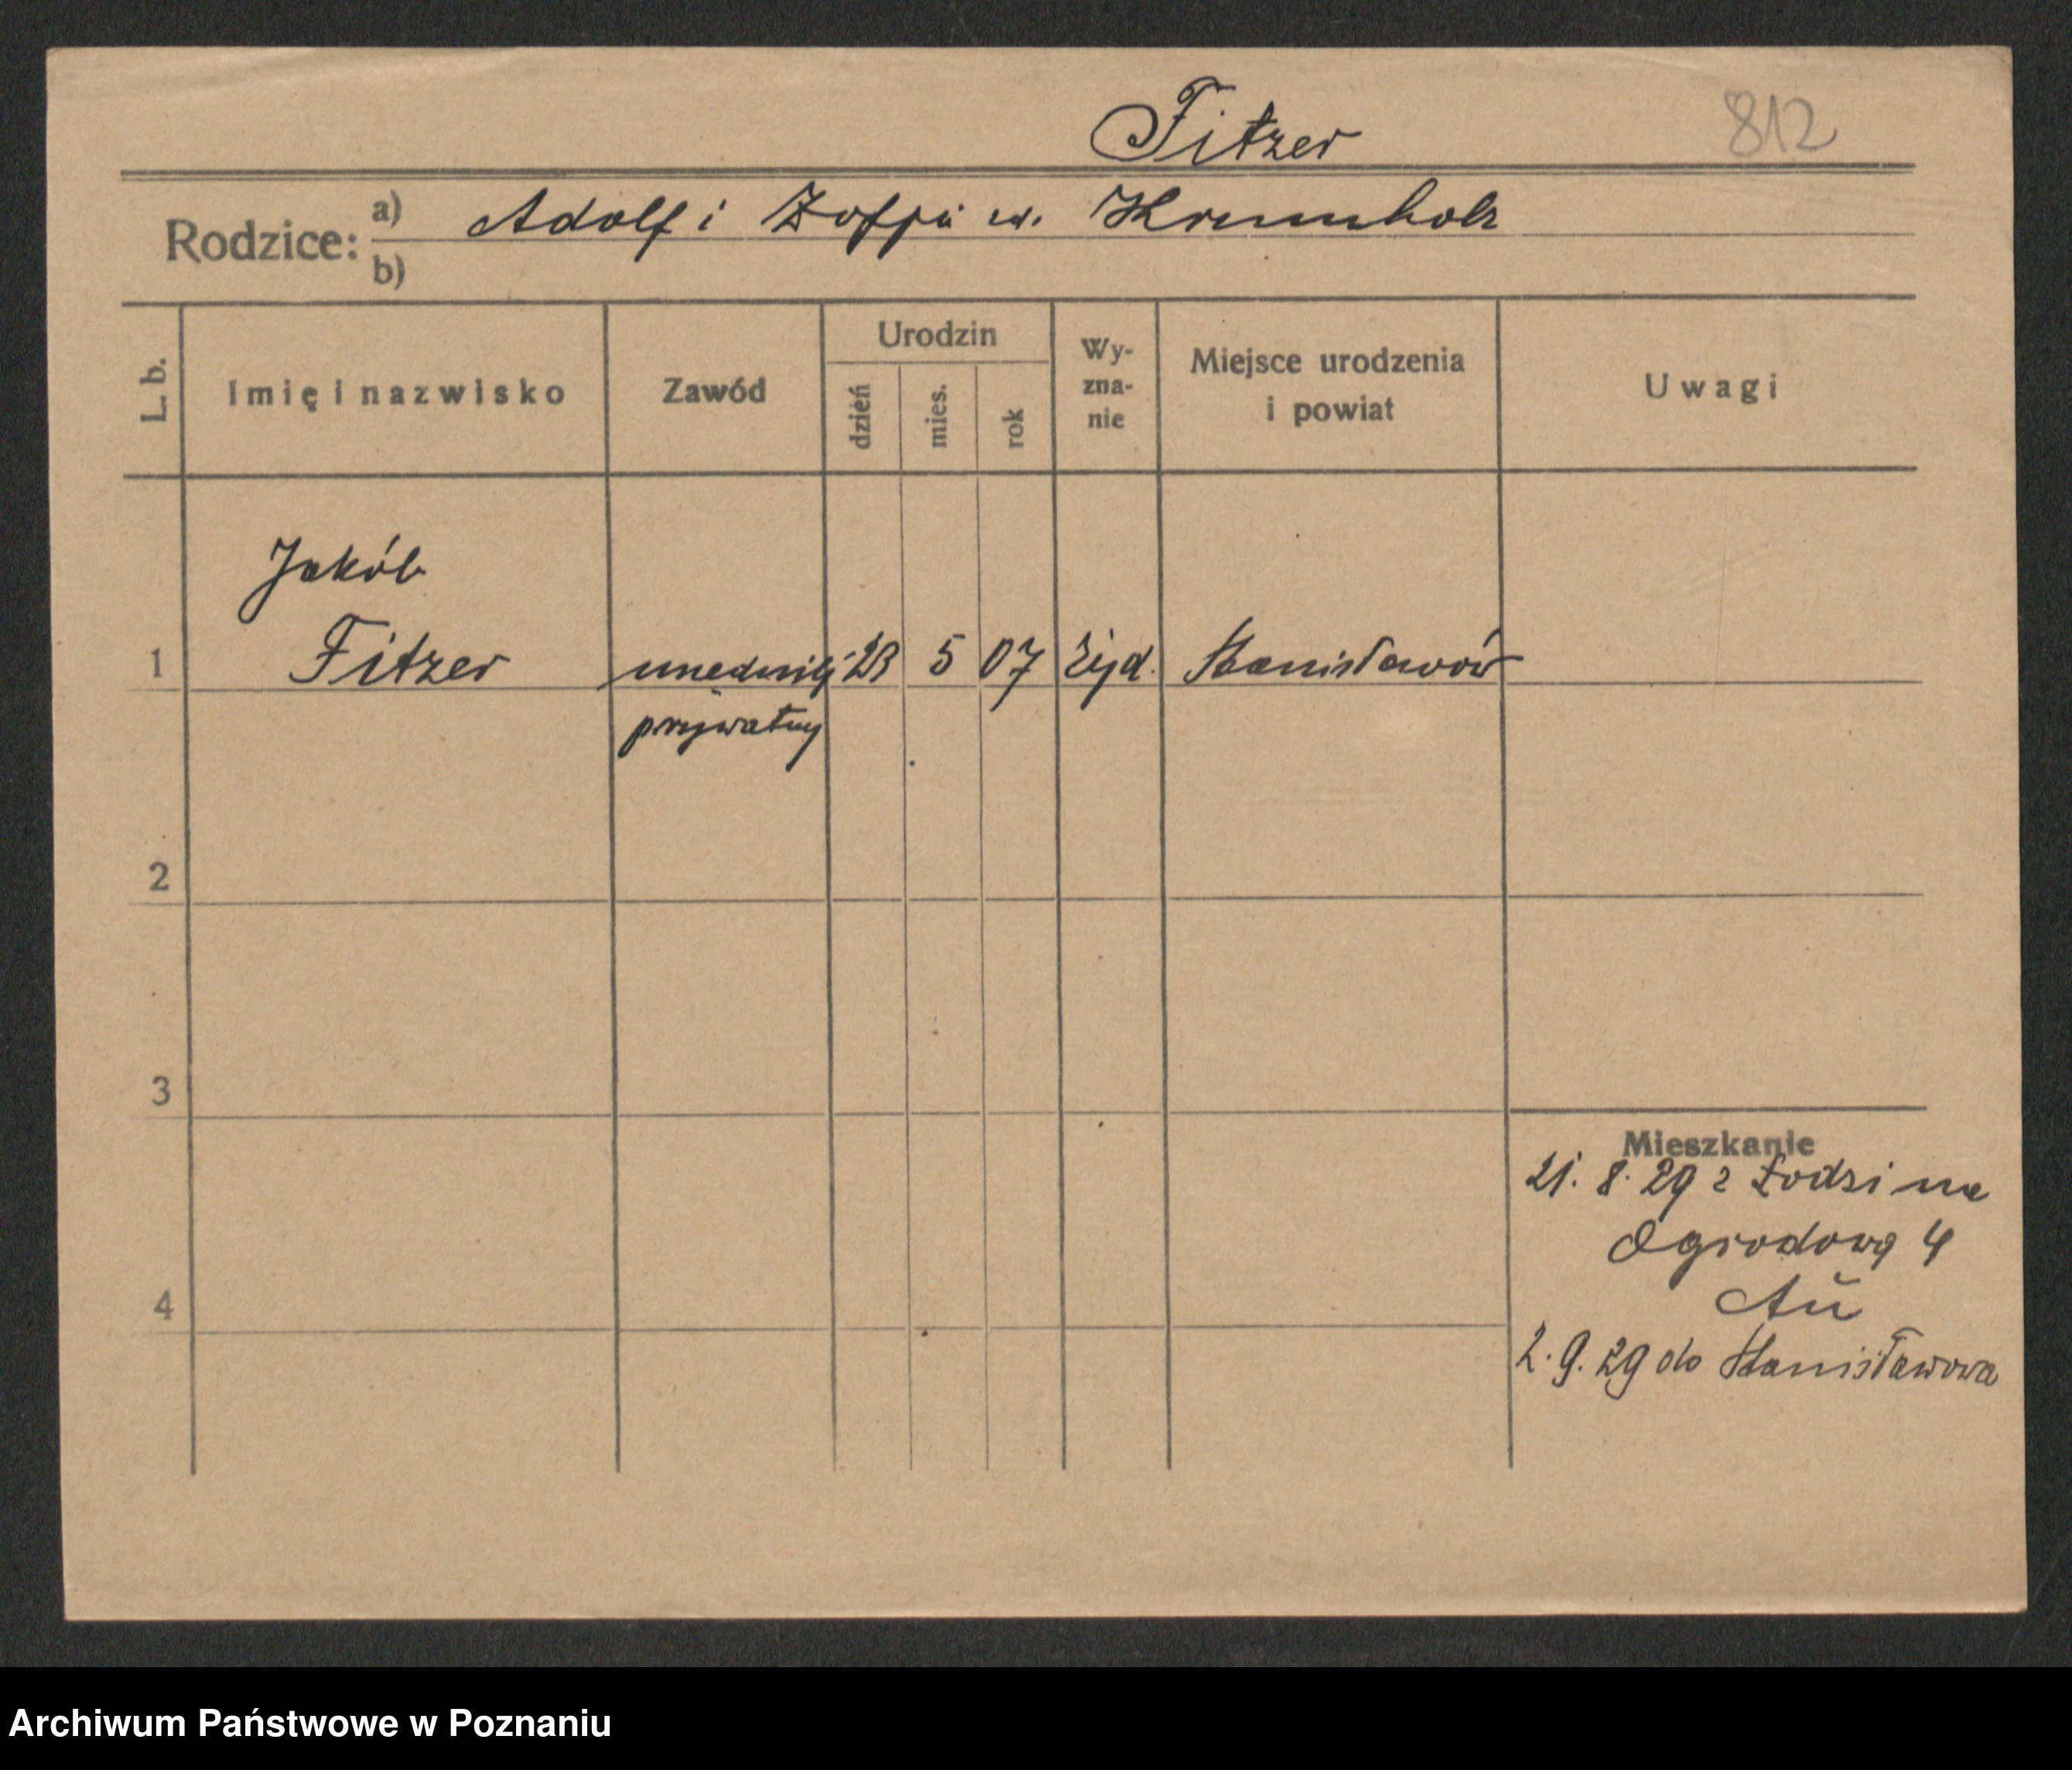 Fitzer 812
Rodzice: a) Adolf i Zofja z d. Krumholz
b)
L. b. Imię i nazwisko Zawód Urodzin dzień mies. rok Wy-zna-nie Miejsce urodzenia i powiat Uwagi
Jakób
1 Fitzer urzędnik 23 5 07 żyd. Stanisławów
prywatny
2
3
Mieszkanie
21. 8. 29 z Łodzi na
Ogrodową 4
4
2. 9. 29 do Stanisławowa
Archiwum Państwowe w Poznaniu